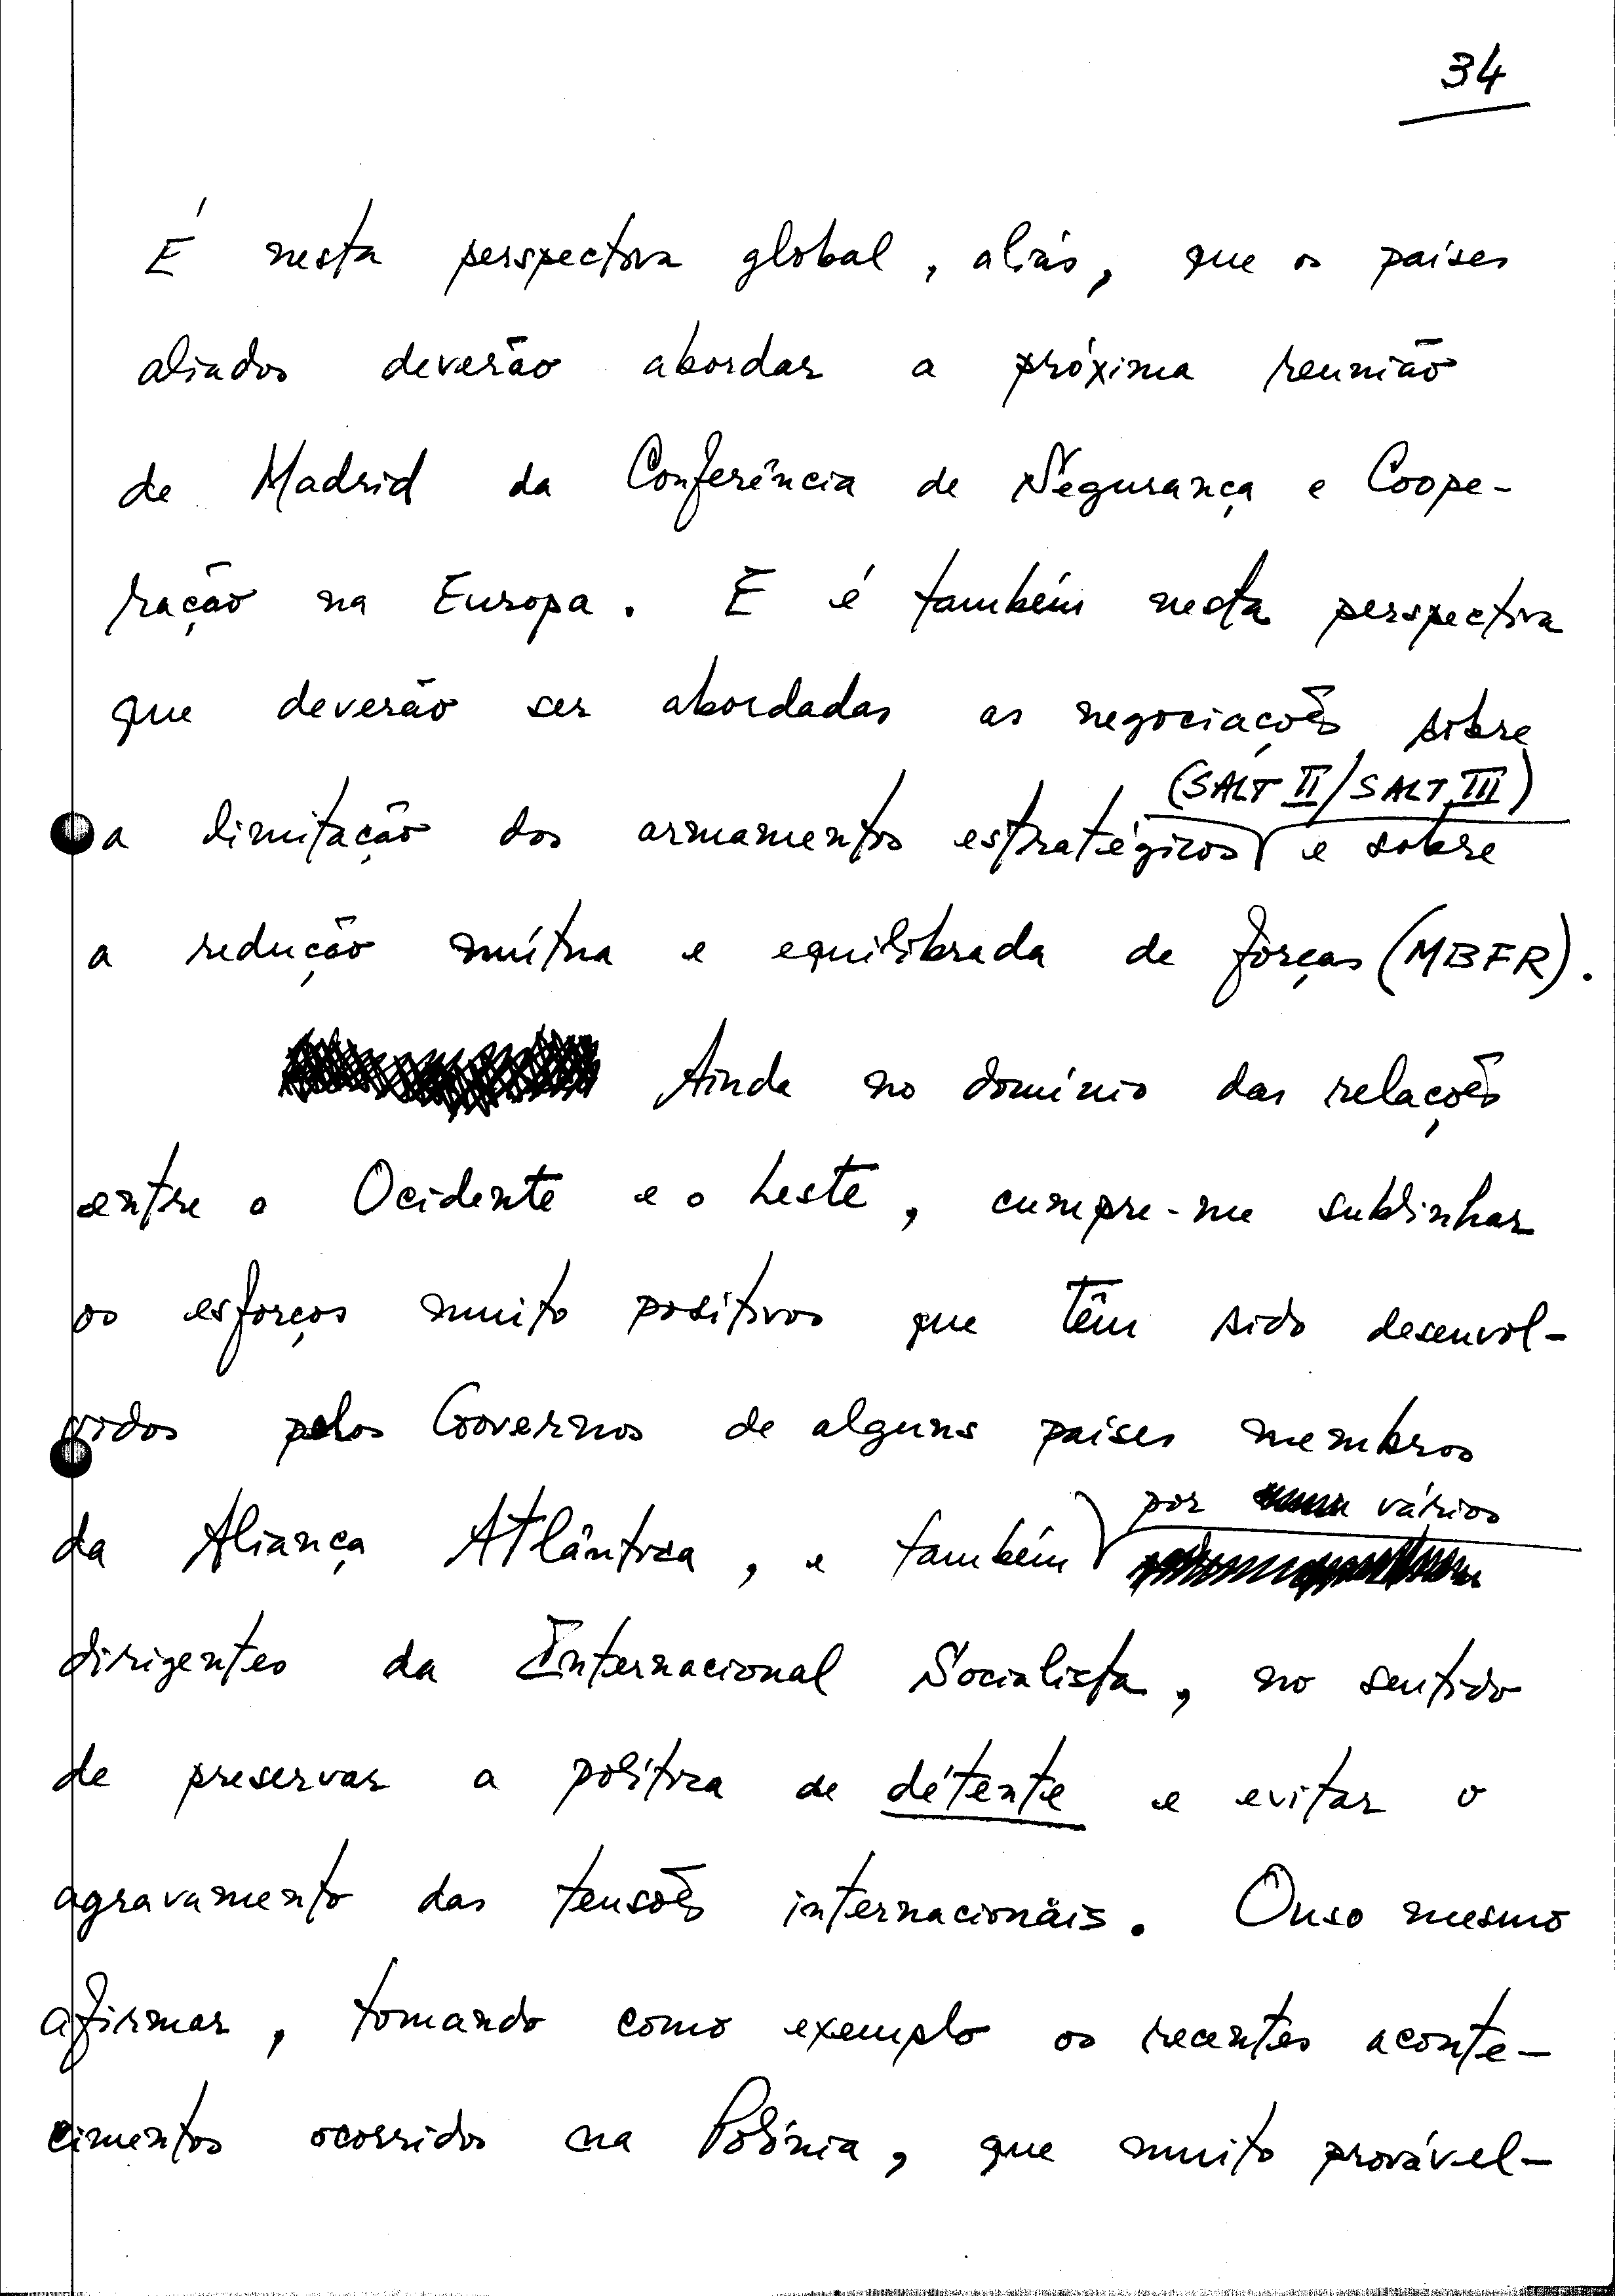 34
É nesta perspectiva global, aliás, que os países
aliados deverão abordar a próxima reunião
de Madrid da Conferência de Segurança e Coope-
ração na Europa. E é também nesta perspectiva
que deverão ser abordadas as negociações sobre
(SALT II/SALT III)
a limitação dos armamentos estratégicos e sobre
a redução mútua e equilibrada de forças (MBFR).
Ainda no domínio das relações
entre o Ocidente e o Leste, cumpre-me sublinhar
os esforços muito positivos que têm sido desenvol-
vidos pelos Governos de alguns países membros
por vários
da Aliança Atlântica, e também
dirigentes da Internacional Socialista, no sentido
de preservar a política de détente e evitar o
agravamento das tensões internacionais. Ouso mesmo
afirmar, tomando como exemplo os recentes aconte-
cimentos ocorridos na Polónia, que muito provável-